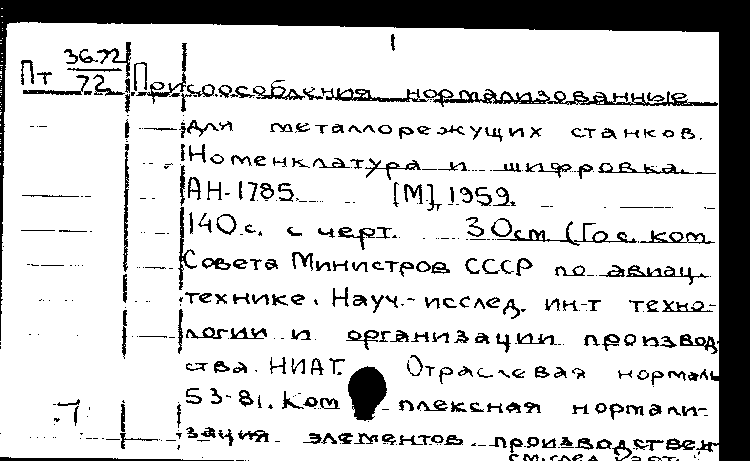 1
Пт 36.72
72 Присоособления нормализованные
для металлорежущих станков.
Номенклатура и шифровка.
АН-1785. [М], 1959.
140 с. с черт. 30см (Гос. ком
Совета Министров СССР по авиац.
технике. Науч.-исслед. ин-т техно-
логии и организации производ-
ства. НИАТ. Отраслевая нормаль
53-81. Комплексная нормали-
зация элементов производствен-
см. след. карт.